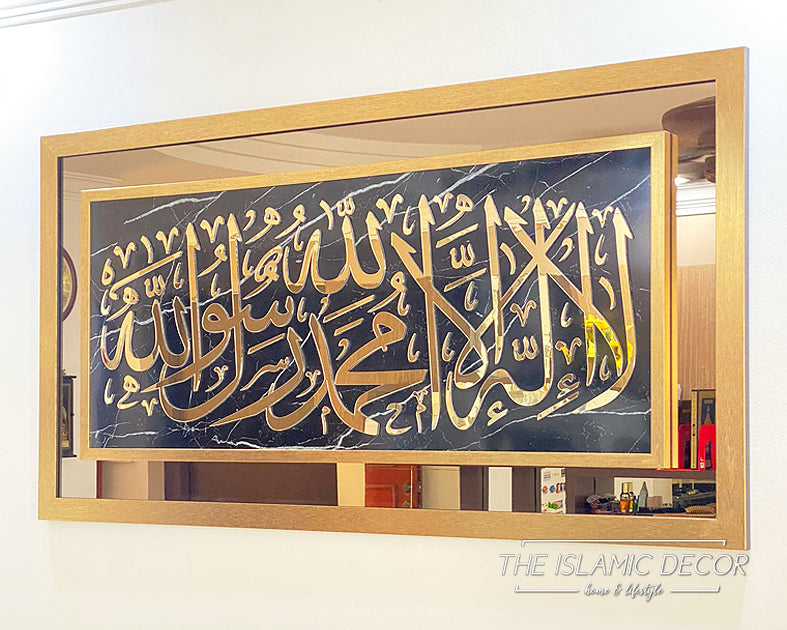 لا إله إلا الله محمد رسول الله
THE ISLAMIC DECOR
home & lifestyle